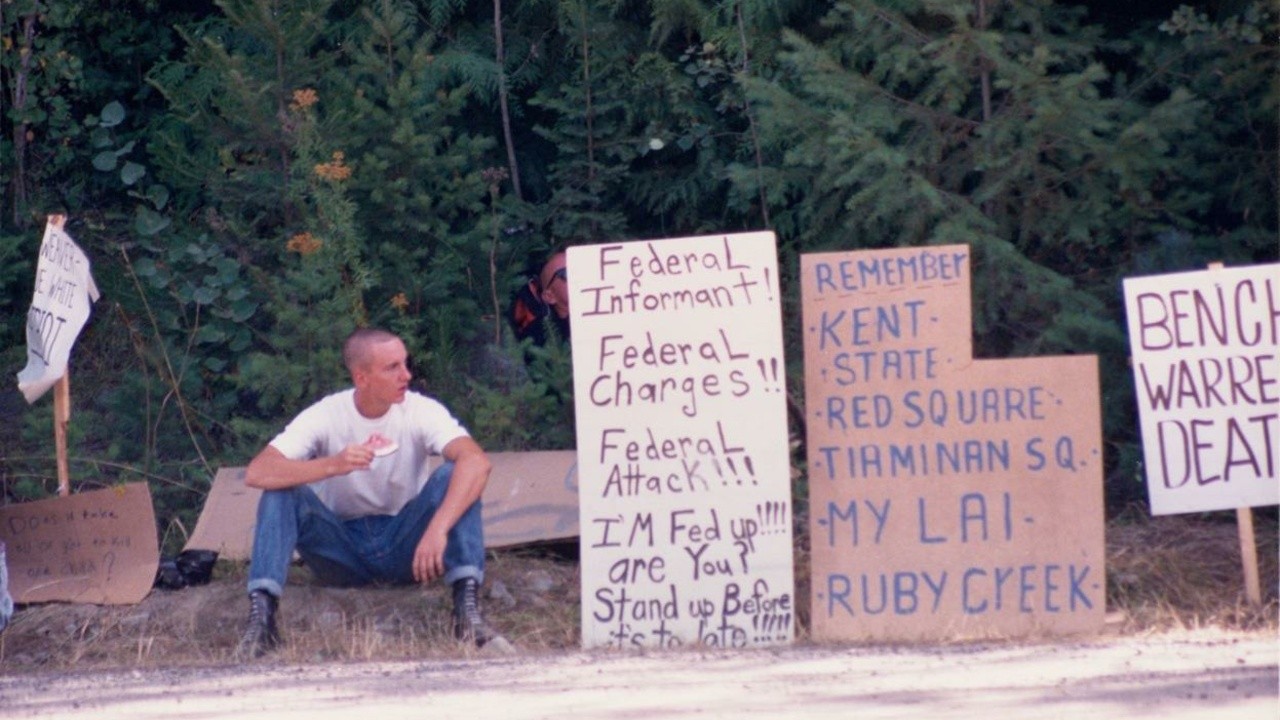 WEAVER-
WHITE
Does it take
all of you to kill
one child?
Federal
Informant!
Federal
Charges!!
Federal
Attack!!!
I'M Fed up!!!!
are You?
Stand up Before
it's to late!!!!!
REMEMBER
·KENT·
·STATE·
·RED SQUARE·
·TIAMINAN SQ.·
·MY LAI·
·RUBY CrEEK·
BENCH
WARRE
DEAT